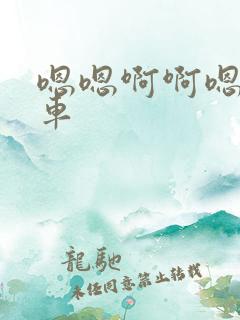 嗯嗯啊啊嗯
車
龍馳
未经同意禁止转载